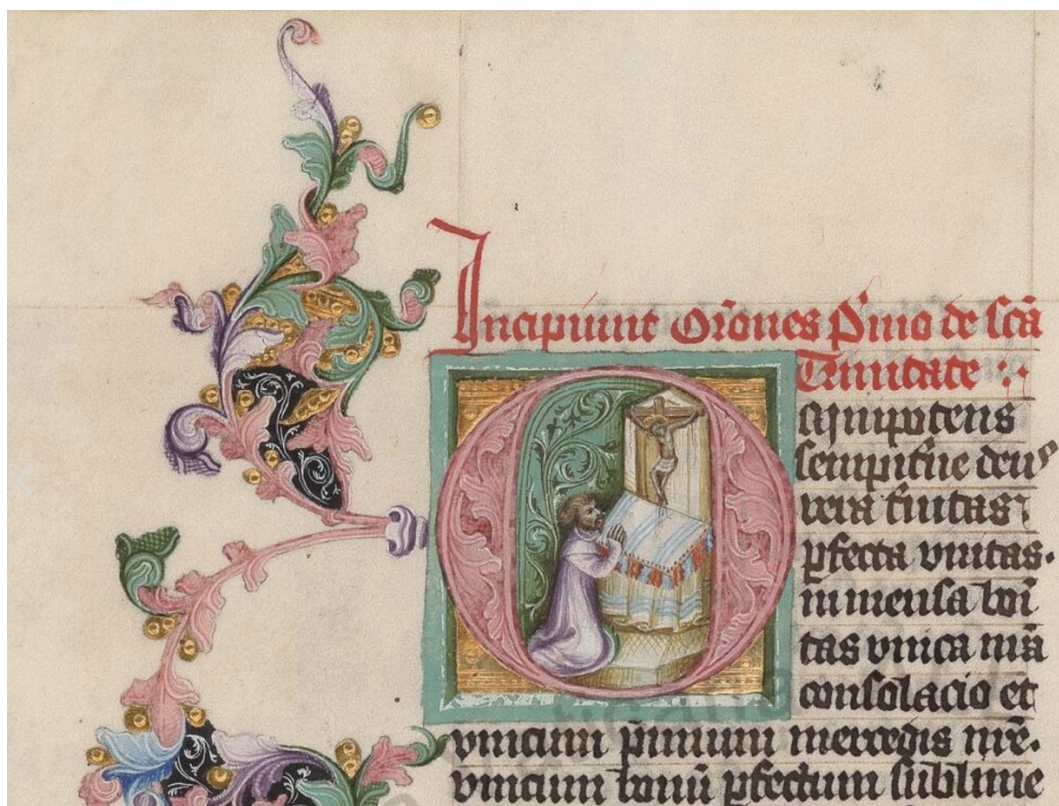 Incipiunt Orōnes P̄mo de scā
Trinitate :·
Omnipotens
sempit̄ne deus
vera t̄nitas ⁊
ꝑfecta vnitas·
inmensa bonī
tas vnica nr̄a
consolacio et
vnicum p̄mium mercedis nr̄e·
vnicum bonū ꝑfectum sublime